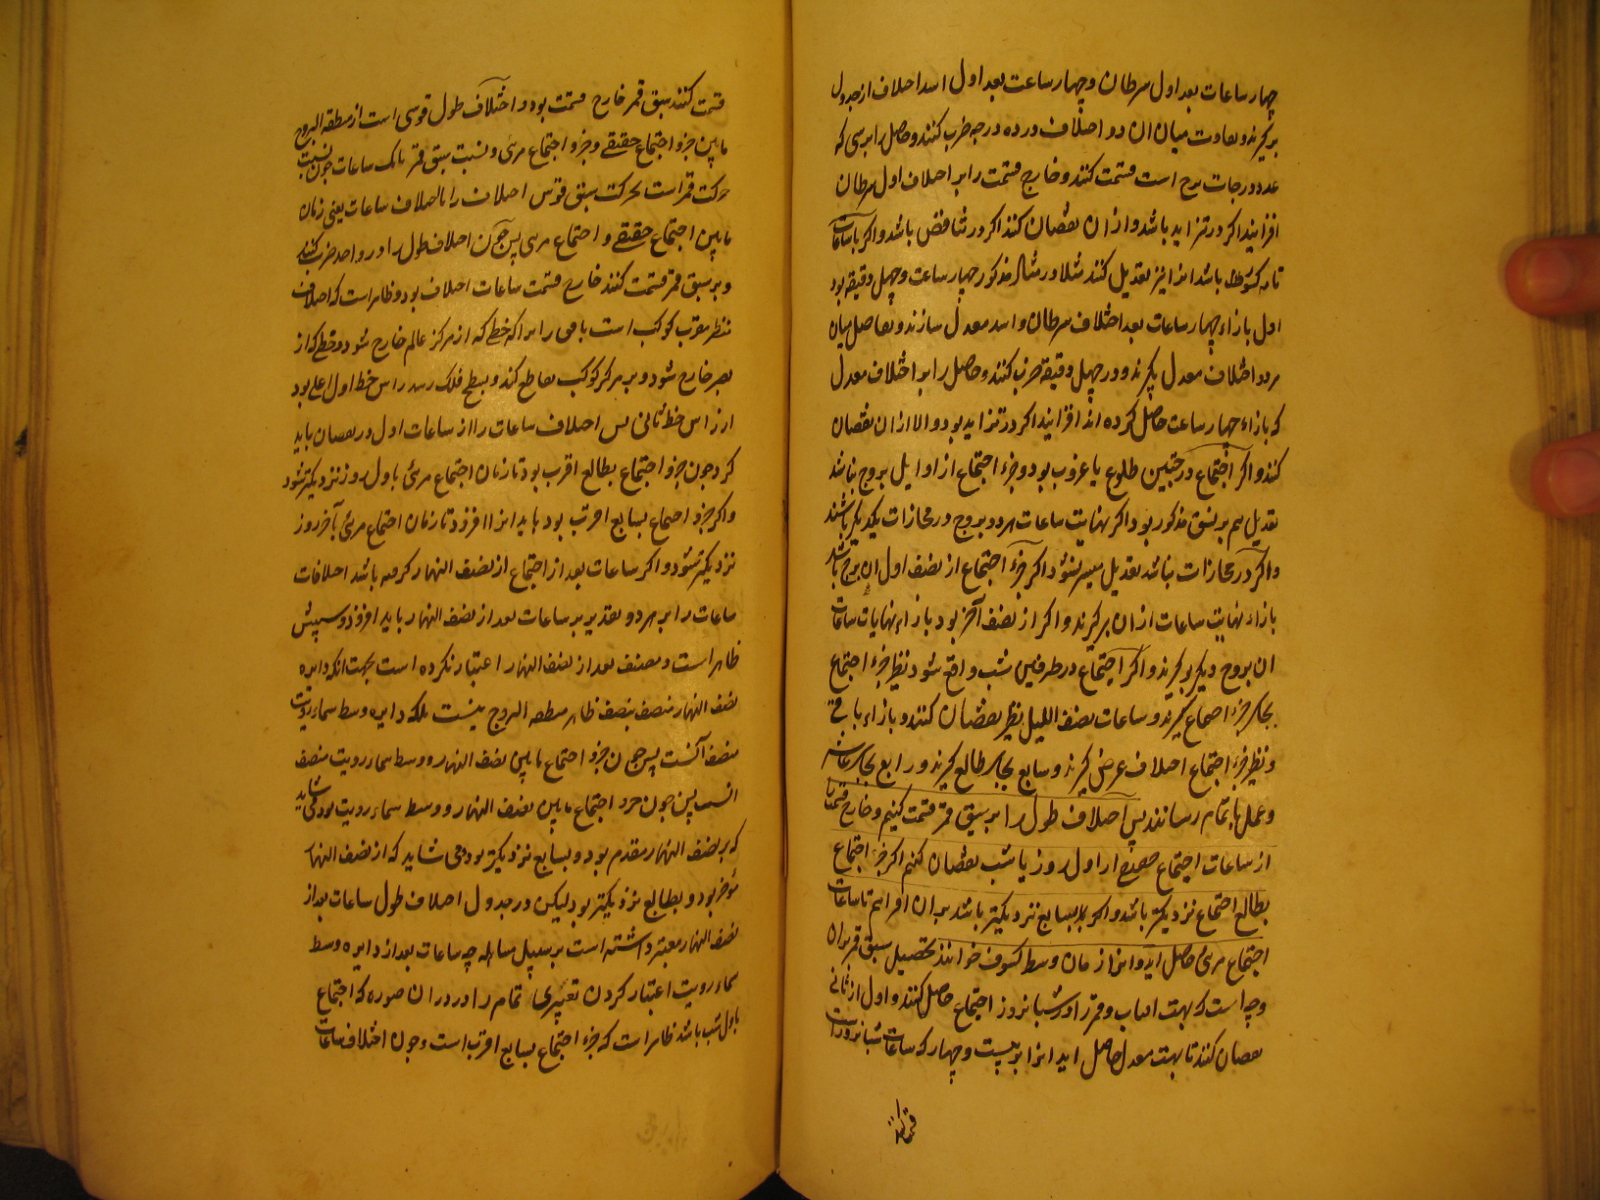 چهار ساعات بعد اول سرطان و چهار ساعت بعد اول اسد احلاف از جدول
برگیرند و تفاوت میان ان دو اختلاف در ده درجه ضرب کنند و حاصل را بر سی که
عدد درجات برج است قسمت کنند و خارج قسمت را بر احلاف اول سرطان
افزایند اگر در تزاید باشد و از ان نقصان کنند اگر در تناقض باشد و اگر با ساعات
تامه کسور باشد انرا نیز تعدیل کنند مثلا در مثال مذکور چهار ساعت و چهل دقیقه بود
اول بازاء چهار ساعات بعد اختلاف سرطان و اسد معدل سازند و تفاضل میان
هر دو اختلاف معدل بگیرند و در چهل دقیقه ضرب کنند و حاصل را بر اختلاف معدل
که بازاء چهار ساعت حاصل کرده اند افزایند اگر در تزاید بود و الا از ان نقصان
کنند و اگر اجتماع در حین طلوع یا غروب بود و جزء اجتماع از اوایل بروج نباشد
تعدیل هم بر نسق مذکور بود اگر نهایت ساعات هر دو بروج در محازات یکدیگر باشند
و اگر در محازات نباشد تعدیل میسر نشود و اگر جزء اجتماع از نصف اول ان برج باشد
بازاء نهایت ساعات ازان برگیرند و اگر از نصف آخر بود بازاء نهایات ساعات
ان بروج دیگر برگیرند و اگر اجتماع در طرفین شب واقع شود نظیر جزء اجتماع
بجای جزء اجتماع گیرند و ساعات نصف اللیل نظیر نقصان کنند و بازاء باقی
و نظیر جزء اجتماع احلاف عرض گیرند و سابع بجای طالع گیرند و رابع بجای عاشر
و عمل ها بتمام رسانند پس اختلاف طول را بر سبق قمر قسمت کنیم و خارج قسمت را
از ساعات اجتماع حقیقی از اول روز یا شب نقصان کنیم اگر جزء اجتماع
بطالع اجتماع نزدیکتر باشد و اگر بسابع نزدیکتر باشد بران افزاییم تا ساعات
اجتماع مرئی حاصل اید و انرا زمان وسط کسوف خوانند تحصیل سبق قمر بران
وجه است که بهت افتاب و قمر را در شبانروز اجتماع حاصل کنند و اول از ثانی
نقصان کنند تا بهت معدل حاصل اید انرا بر بیست و چهار که ساعات شبانروز است
قسمت کنند
قسمت کنند سبق قمر خارج قسمت بود و اختلاف طول قوسی است از منطقه البروج
مابین جزو اجتماع حقیقی و جزو اجتماع مرئی و نسبت سبق قمر بانک ساعات چون نسبت
حرکت قمر است بحرکت سبق قوس احلاف را باحلاف ساعات یعنی زمان
مابین اجتماع حقیقی و اجتماع مرئی پس چون احلاف طول را در واحد ضرب کنند
و بر سبق قمر قسمت کنند خارج قسمت ساعات احلاف بود و ظاهر است که احلاف
منظر بقرب کوکب است بافق را براکه خطی که از مرکز عالم خارج شود و خطی که از
بصر خارج شود و بر مرکز کوکب تقاطع کند و بسطح فلک رسد راس خط اول اعلی بود
از راس خط ثانی پس احلاف ساعات را از ساعات اول در نقصان باید
کرد چون جزو اجتماع بطالع اقرب بود تا زمان اجتماع مرئی باول روز نزدیکتر شود
و اگر جزو اجتماع بسابع اقرب بود باید انرا افزود تا زمان اجتماع مرئی بآخر روز
نزدیکتر شود و اگر ساعات بعد از اجتماع از نصف النهار گرفته باشد احلافات
ساعات را بر هر دو تقدیر بر ساعات بعد از نصف النهار باید افزود و سببش
ظاهر است و مصنف بعد از نصف النهار اعتبار نکرده است بجهت انکه دایره
نصف النهار منصف نصف ظاهر منطقه البروج نیست بلکه دایره وسط سماء رویت
منصف آنست پس چون جزو اجتماع مابین نصف النهار و وسط سماء رویت منصف
انست پس چون جزو اجتماع مابین نصف النهار و وسط سماء رویت بود گاه شاید
که بر نصف النهار مقدم بود و بسابع نزدیکتر بود و می شاید که از نصف النهار
مؤخر بود و بطالع نزدیکتر بود لیکن در جدول احلاف طول ساعات بعد از
نصف النهار معتبر داشته است بر سبیل مساهله چه ساعات بعد از دایره وسط
سماء رویت اعتبار کردن تغییری تمام را در دران صوره که اجتماع
باول شب باشد ظاهر است که جزء اجتماع بسابع اقرب است و چون اختلاف ساعات